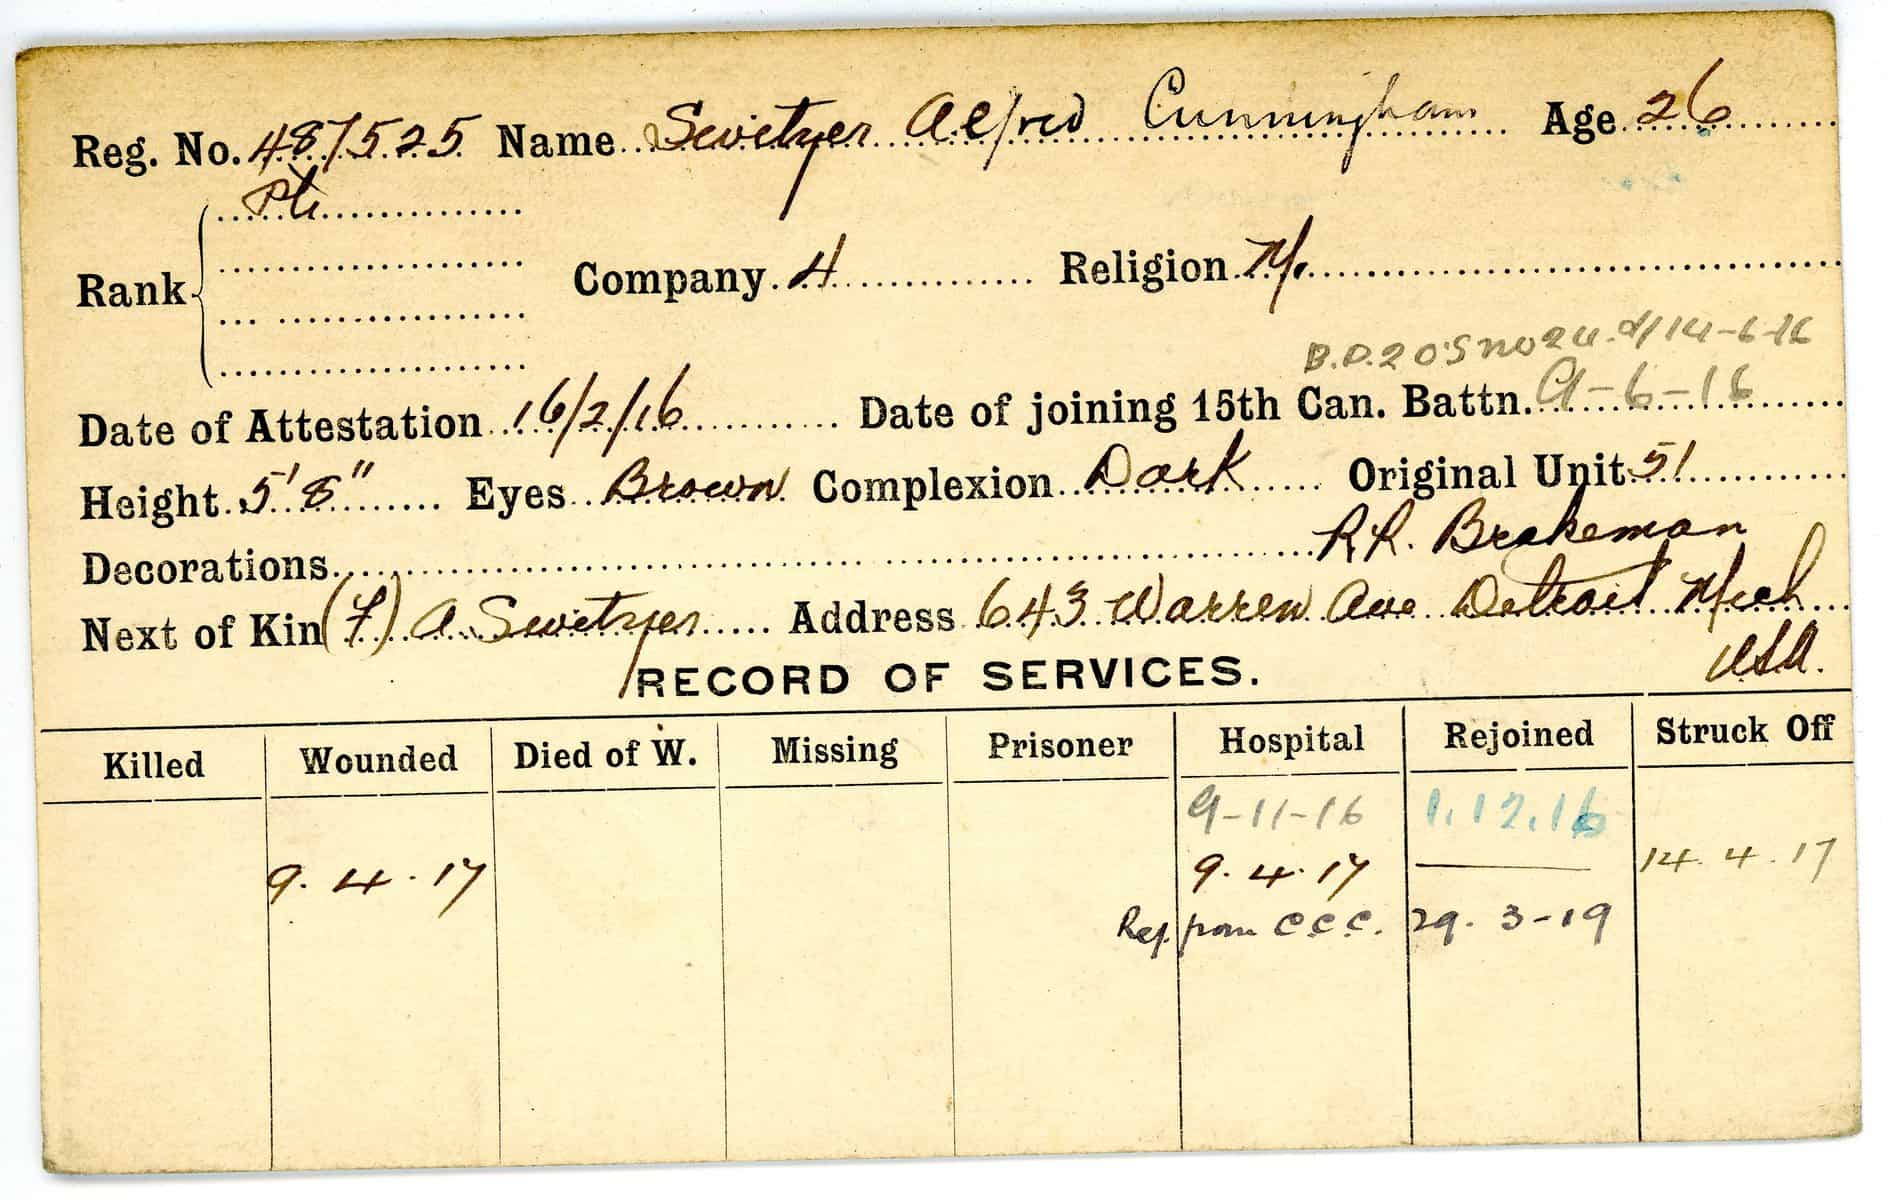 Reg. No. 487525 Name Switzer Alfred Cunningham Age 26
Pte
Rank Company 4 Religion M.
B.D.205 no 24 d/14-6-16
Date of Attestation 16/2/16 Date of joining 15th Can. Battn. 9-6-16
Height 5'8" Eyes Brown Complexion Dark Original Unit 51
Decorations R.R. Brakeman
Next of Kin (F) A Switzer Address 643 Warren Ave Detroit Mich
USA.
RECORD OF SERVICES.
Killed Wounded Died of W. Missing Prisoner Hospital Rejoined Struck Off
9-11-16 1.12.16
9.4.17 9.4.17 14.4.17
Rej. from C.C.C. 29.3-19